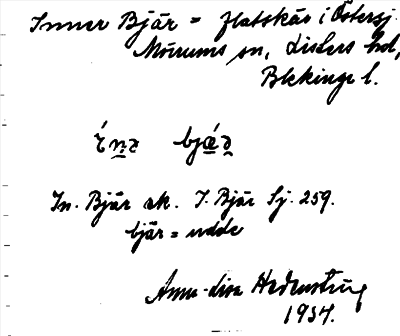 Inner Bjär = flatskär i Östersj.
Mörrums sn, Listers hd,
Blekinge l.
In. Bjär ek. I. Bjär Sj. 259.
bjär = udde
Anna-Lisa
1934.